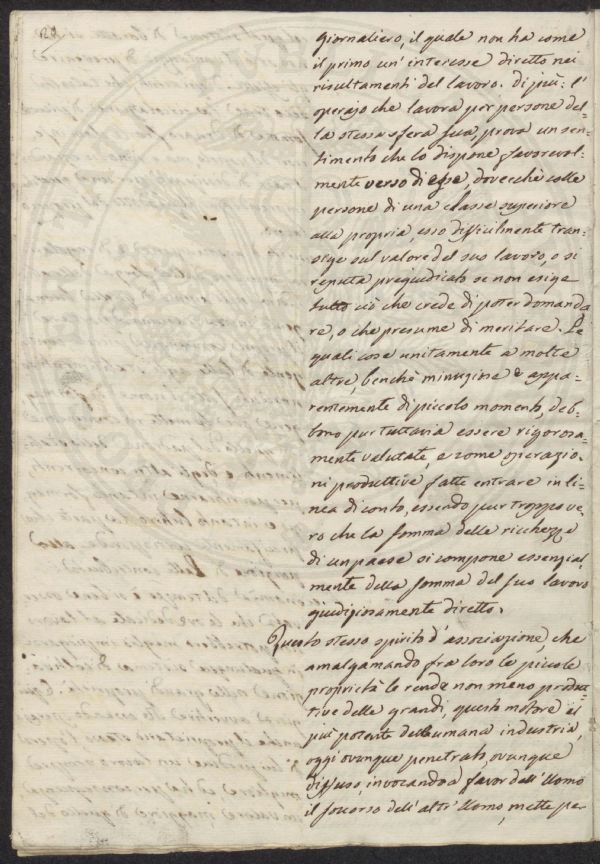 20
giornaliero, il quale non ha come
il primo un' interesse diretto nei
risultamenti del lavoro. Di più: l'
operajo che lavora per persone del=
la stessa sfera sua, prova un sen=
timento che lo dispone favorevol=
mente verso di esse, dovecchè colle
persone di una classe superiore
alla propria, esso difficilmente tran=
sige sul valore del suo lavoro, o si
reputa pregiudicato se non esige
tutto ciò che crede di poter domanda
re, o che presume di meritare. Le
quali cose unitamente a molte
altre, benchè minugiose e appa=
rentemente di piccolo momento, deb=
bono pur tuttavia essere rigorosa=
mente valutate, e come operazio=
ni produttive fatte entrare in li=
nea di conto, essendo pur troppo ve=
ro che la somma delle ricchezze
di un paese si compone essenzial=
mente della somma del suo lavoro
giudiziosamente diretto.
Questo stesso spirito d'associazione, che
amalgamando fra loro le piccole
proprietà le rende non meno produt=
tive delle grandi, questo motore il
più potente dell'umana industria,
oggi ovunque penetrato, ovunque
diffuso, invocando a favor dell'Uomo
il soccorso dell'altr'Uomo, mette pa=